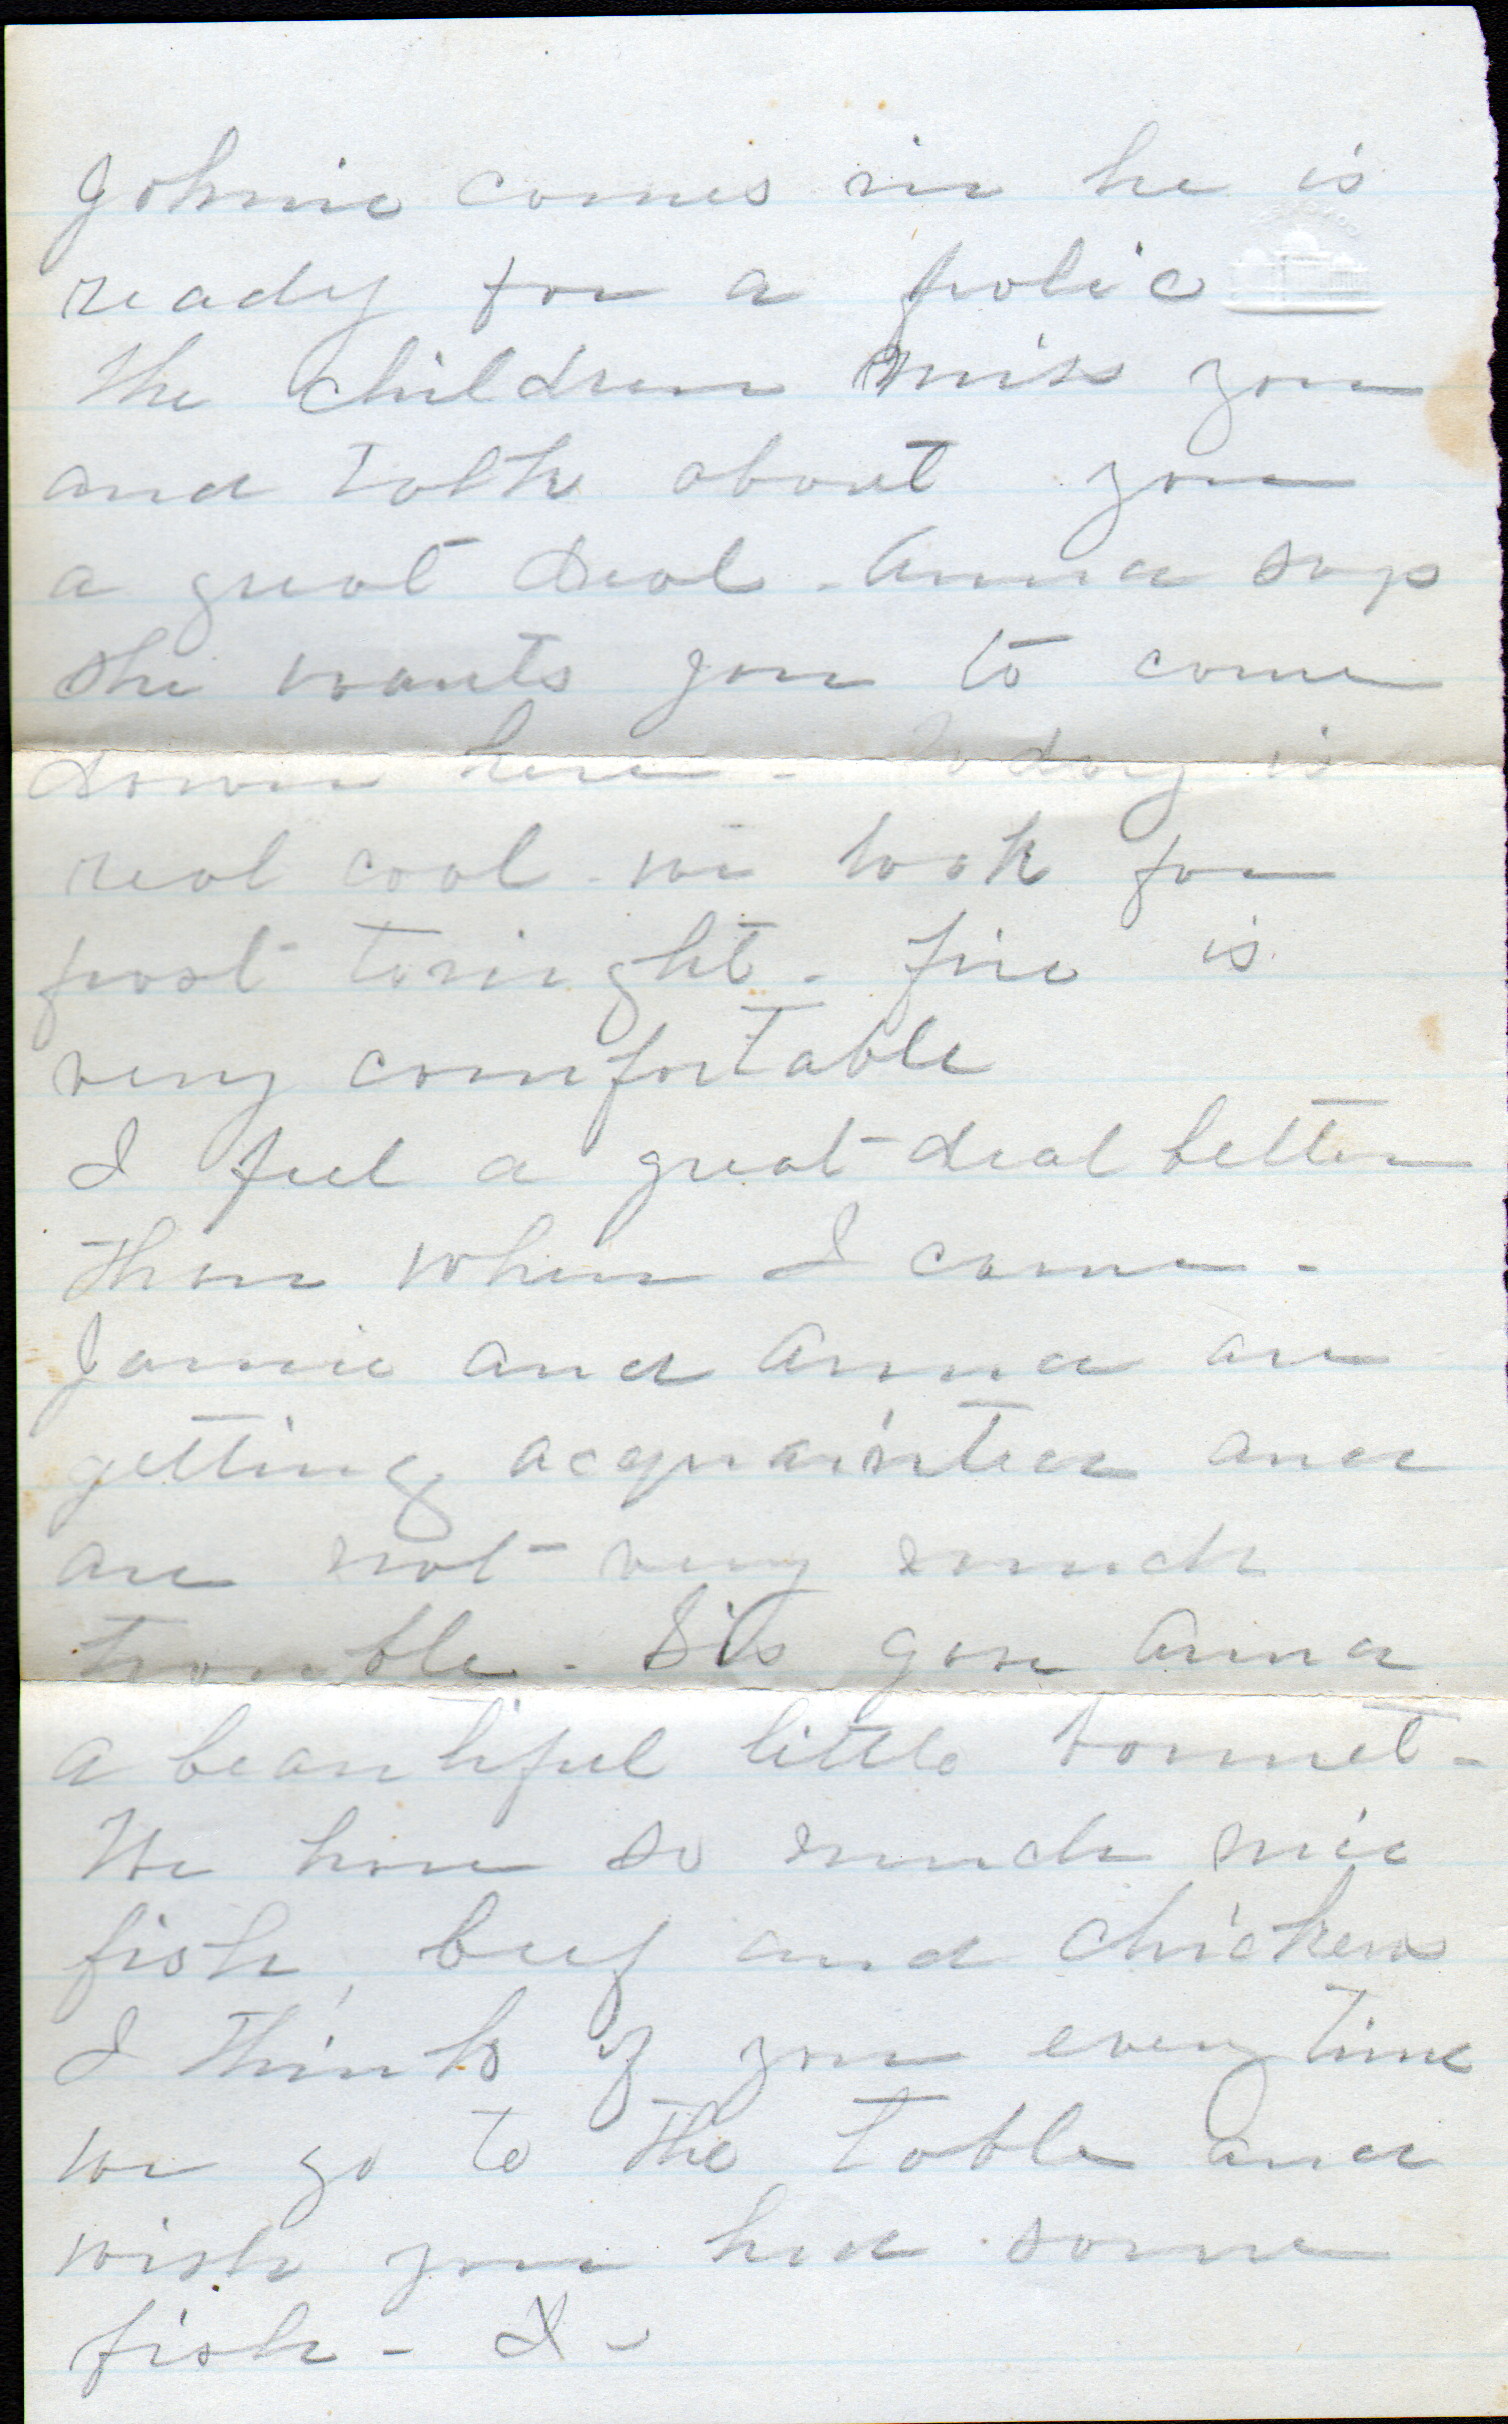 Johnie comes in he is
ready for a frolic
The children miss you
and talk about you
a great deal - Anna says
she wants you to come
down here - Today is
real cool - we look for
frost tonight - fire is
very comfortable
I feel a great deal better
than when I came -
Jamie and Anna are
getting acquainted and
are not very much
trouble - Sis gave Anna
a beautiful little bonnet -
We have so much nice
fish, beef and chickens
I think of you every time
we go to the table and
wish you had some
fish -